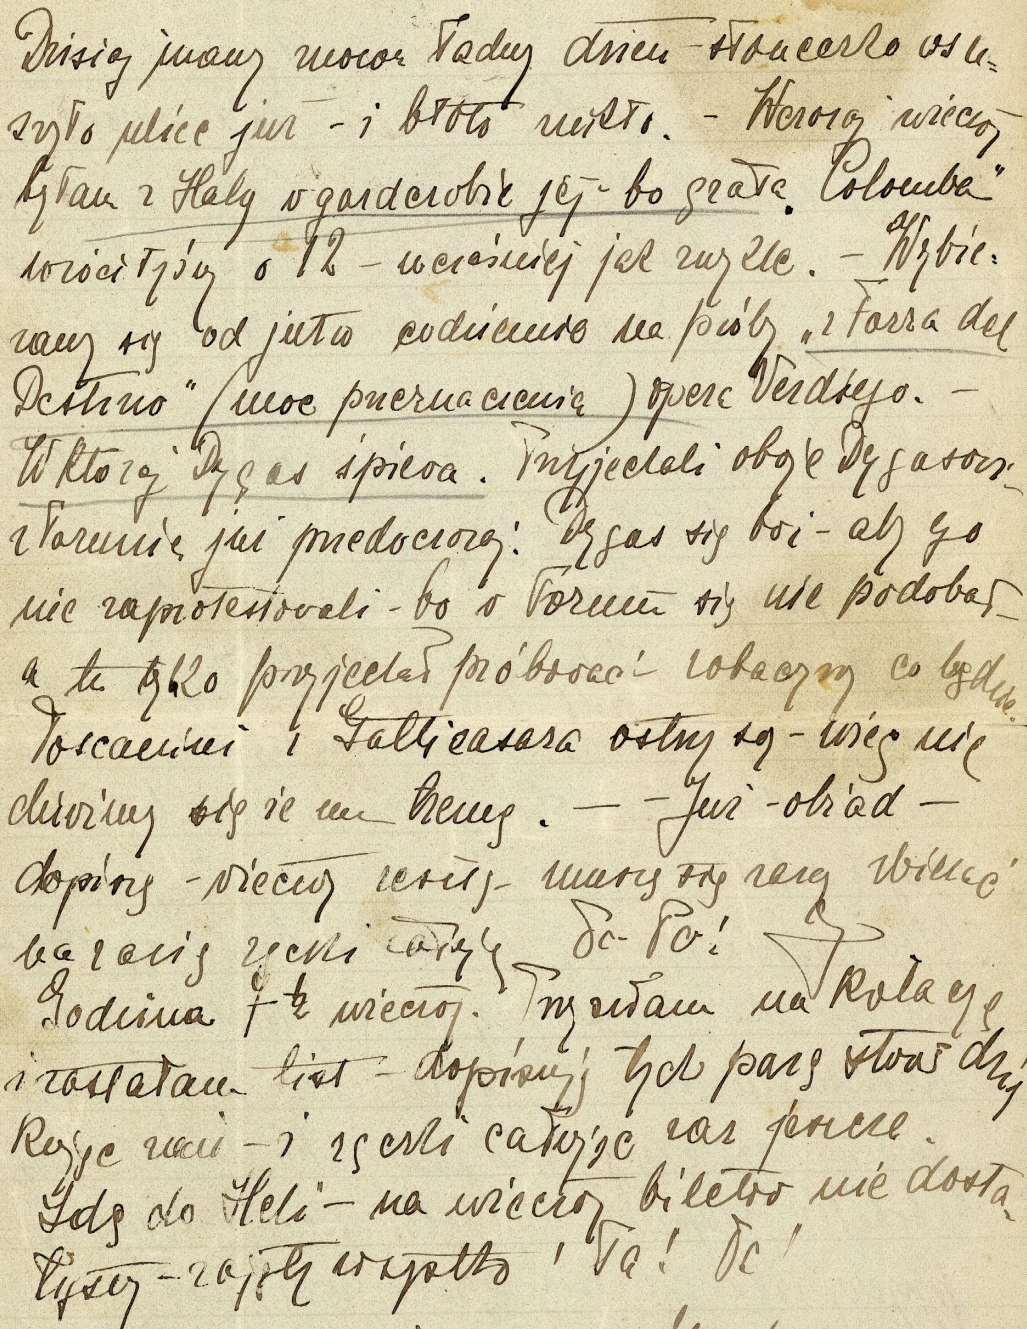 Dzisiaj mamy znowu ładny dzień – słoneczko osu=
szyło ulice już – i błoto znikło. – Wczoraj wieczór
byłam z Halą w garderobie jej – bo grała „Colomba"
wróciłyśmy o 12 – wcześniej jak zwykle. – Wybie=
ramy się od jutra codziennie na próby „z Forza del
Destino" (moc przeznaczenia) opera Verdiego. –
W której Dygas śpiewa. Przyjechali oboje Dygasow.
z Torunia już przedwczoraj. Dygas się boi – aby go
nie zaprotestowali – bo w Toruniu się nie podobał –
a tu tylko przyjechał próbować – zobaczymy co będzie.
Toscanini i Gatticasara ostrzy są – więc nie
dziwimy się że ma tremę. – – Już – obiad –
dopiszę – wieczór resztę – muszę się zaraz zbierać
na razie rączki całuję Pa – Pa!
Godzina 7 ½ wieczór. Przyszłam na kolację
i zastałam list – dopisuję tych parę słów dzię
kując zań – i rączki całując raz jeszcze.
Idę do Heli – na wieczór biletów nie dosta=
łyśmy – zajęty wszystko! Pa! Pa!